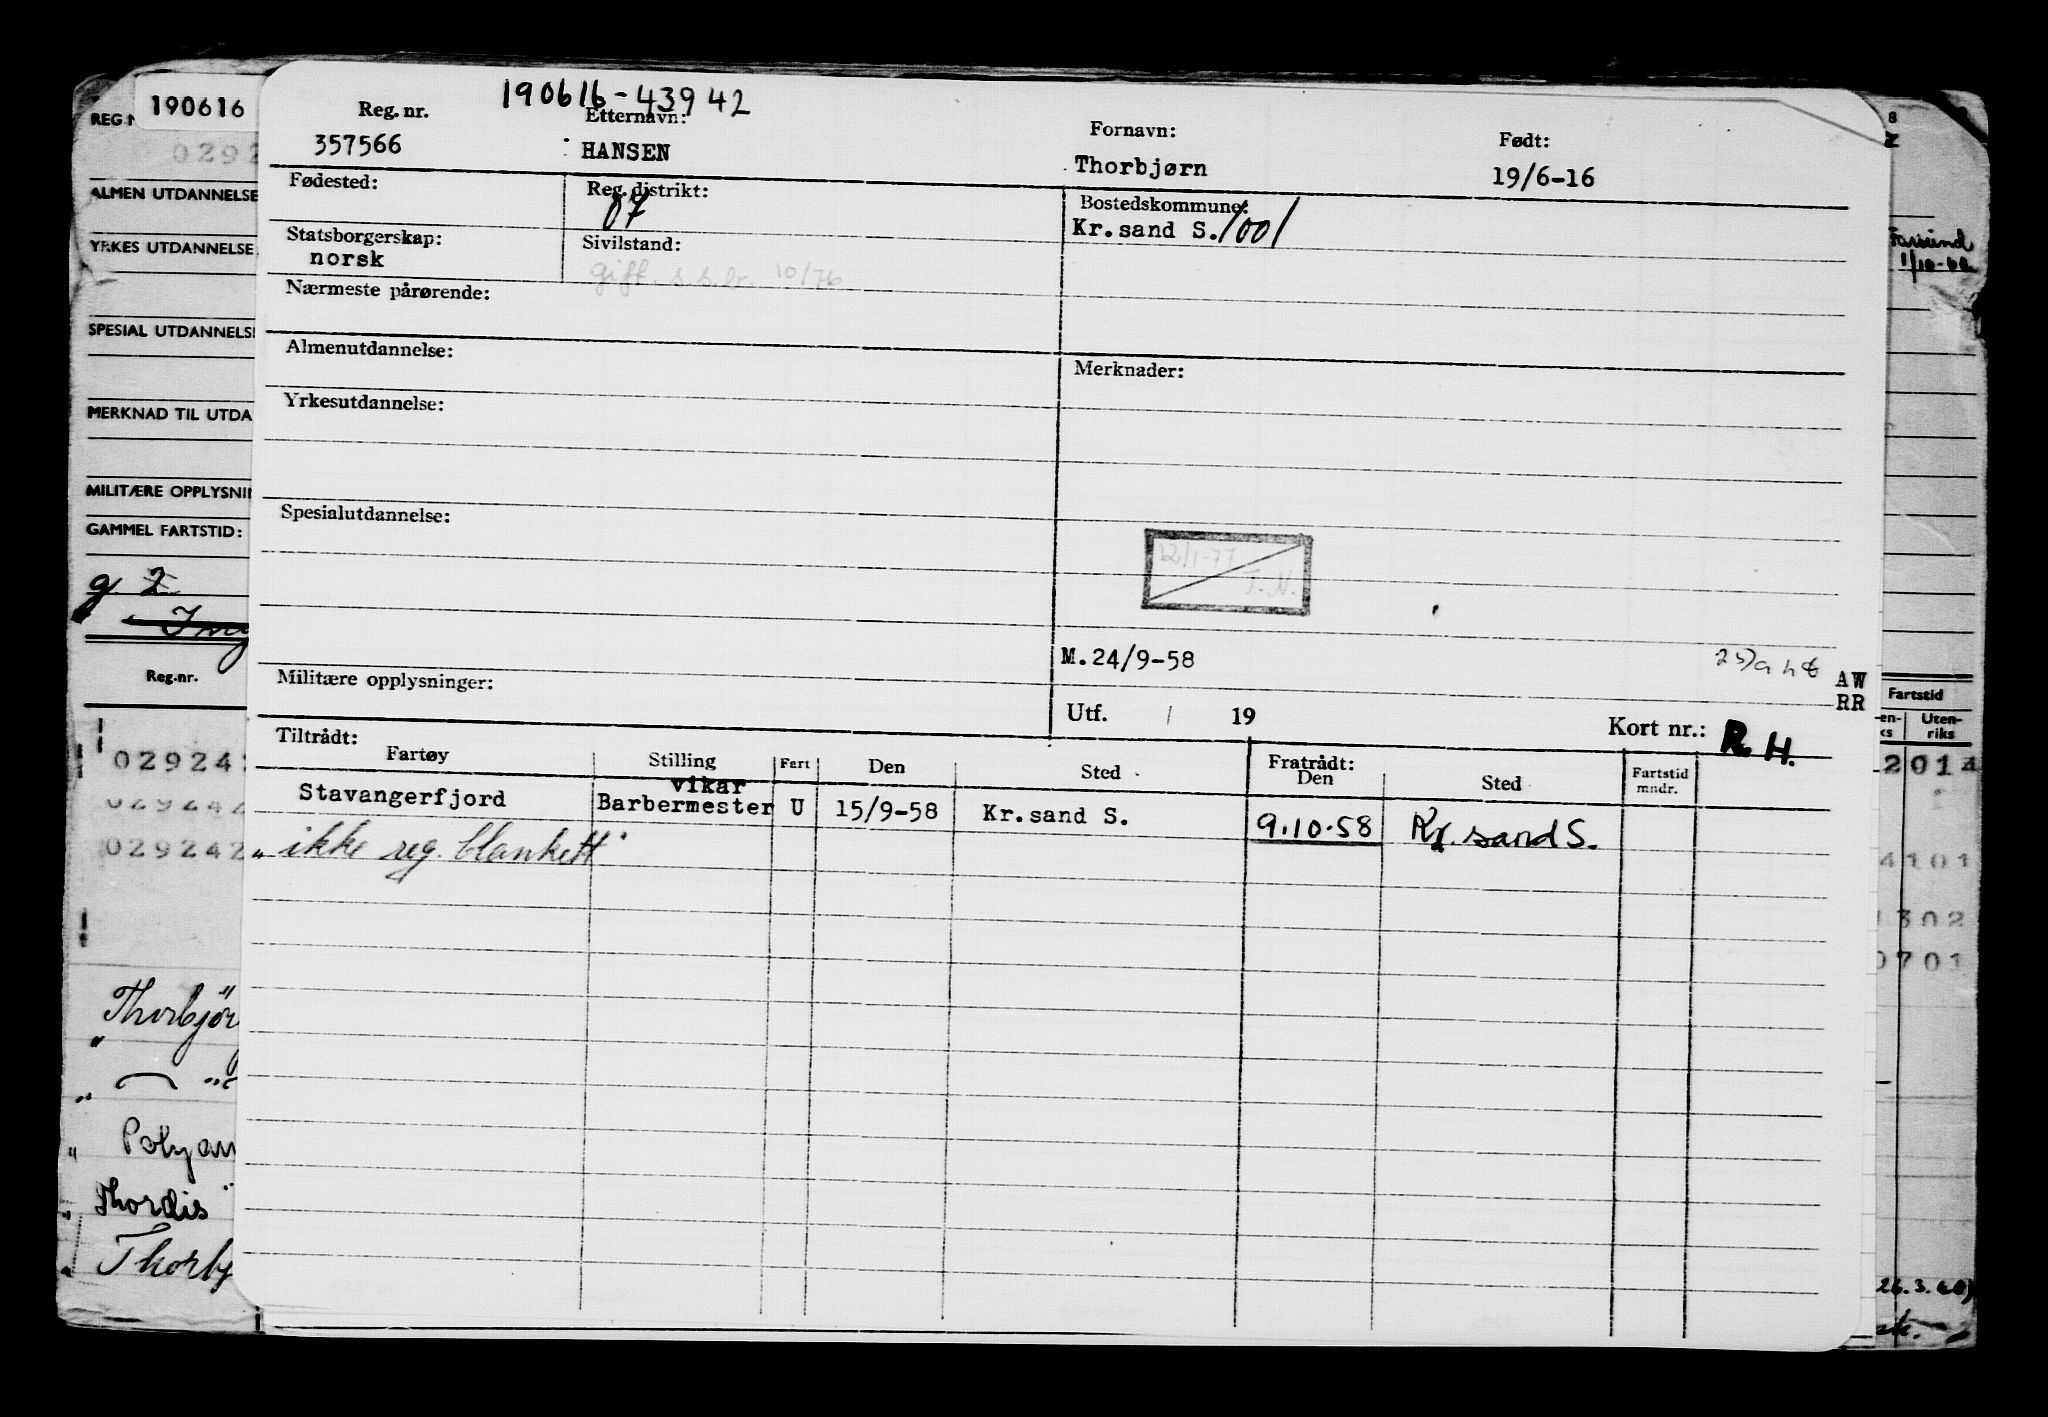 190616-43942
Reg. nr. Etternavn: Fornavn: Født:
357566 HANSEN Thorbjørn 19/6-16
Fødested: Reg. distrikt: Bostedskommune:
07 Kr.sand S. 1001
Statsborgerskap: Sivilstand:
norsk gift. s.s.br. 10/76
Nærmeste pårørende:
Almenutdannelse: Merknader:
Yrkesutdannelse:
Spesialutdannelse:
12/1-77
T.N.
M.24/9-58
Militære opplysninger:
AW
RR
Utf. / 19 Kort nr.: R.H.
Tiltrådt: Fratrådt:
Fartøy Stilling Fart Den Sted Den Sted Fartstid
mndr.
vikar
Stavangerfjord Barbermester U 15/9-58 Kr.sand S. 9.10.58 Kr. sand S.
" ikke reg. blankett "
190616
REG N
0292
ALMEN UTDANNELSE
YRKES UTDANNELSE
SPESIAL UTDANNELSE
MERKNAD TIL UTDA
MILITÆRE OPPLYSNIN
GAMMEL FARTSTID:
g 2
Reg.nr.
029242
029242
029242
Thorbjör
Polyan
Thordis
Thorbj
8
Farsund
Fartstid
en-
ks
Uten-
riks
2014
4101
1302
0701
26.3.60)